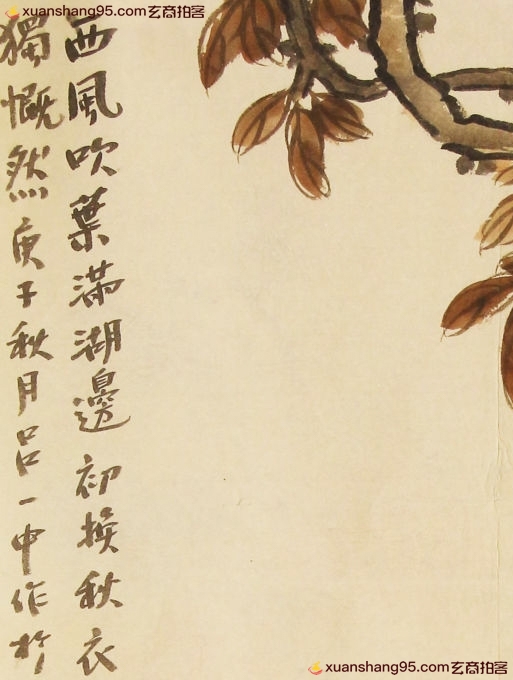 xuanshang95.com玄商拍客
西風吹葉滿湖邊初換秋衣
獨慨然庚子秋月呂一中作於
xuanshang95.com玄商拍客
xuanshang95.com玄商拍客